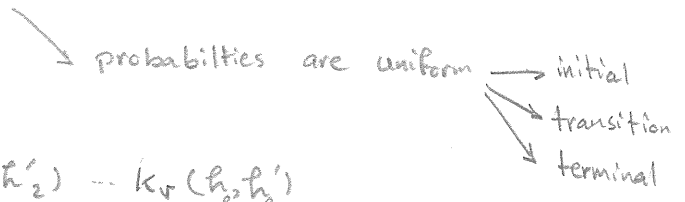 probabilties are uniform → initial
→ transition
→ terminal
h'₂) ... k_v(h_e, h_e')